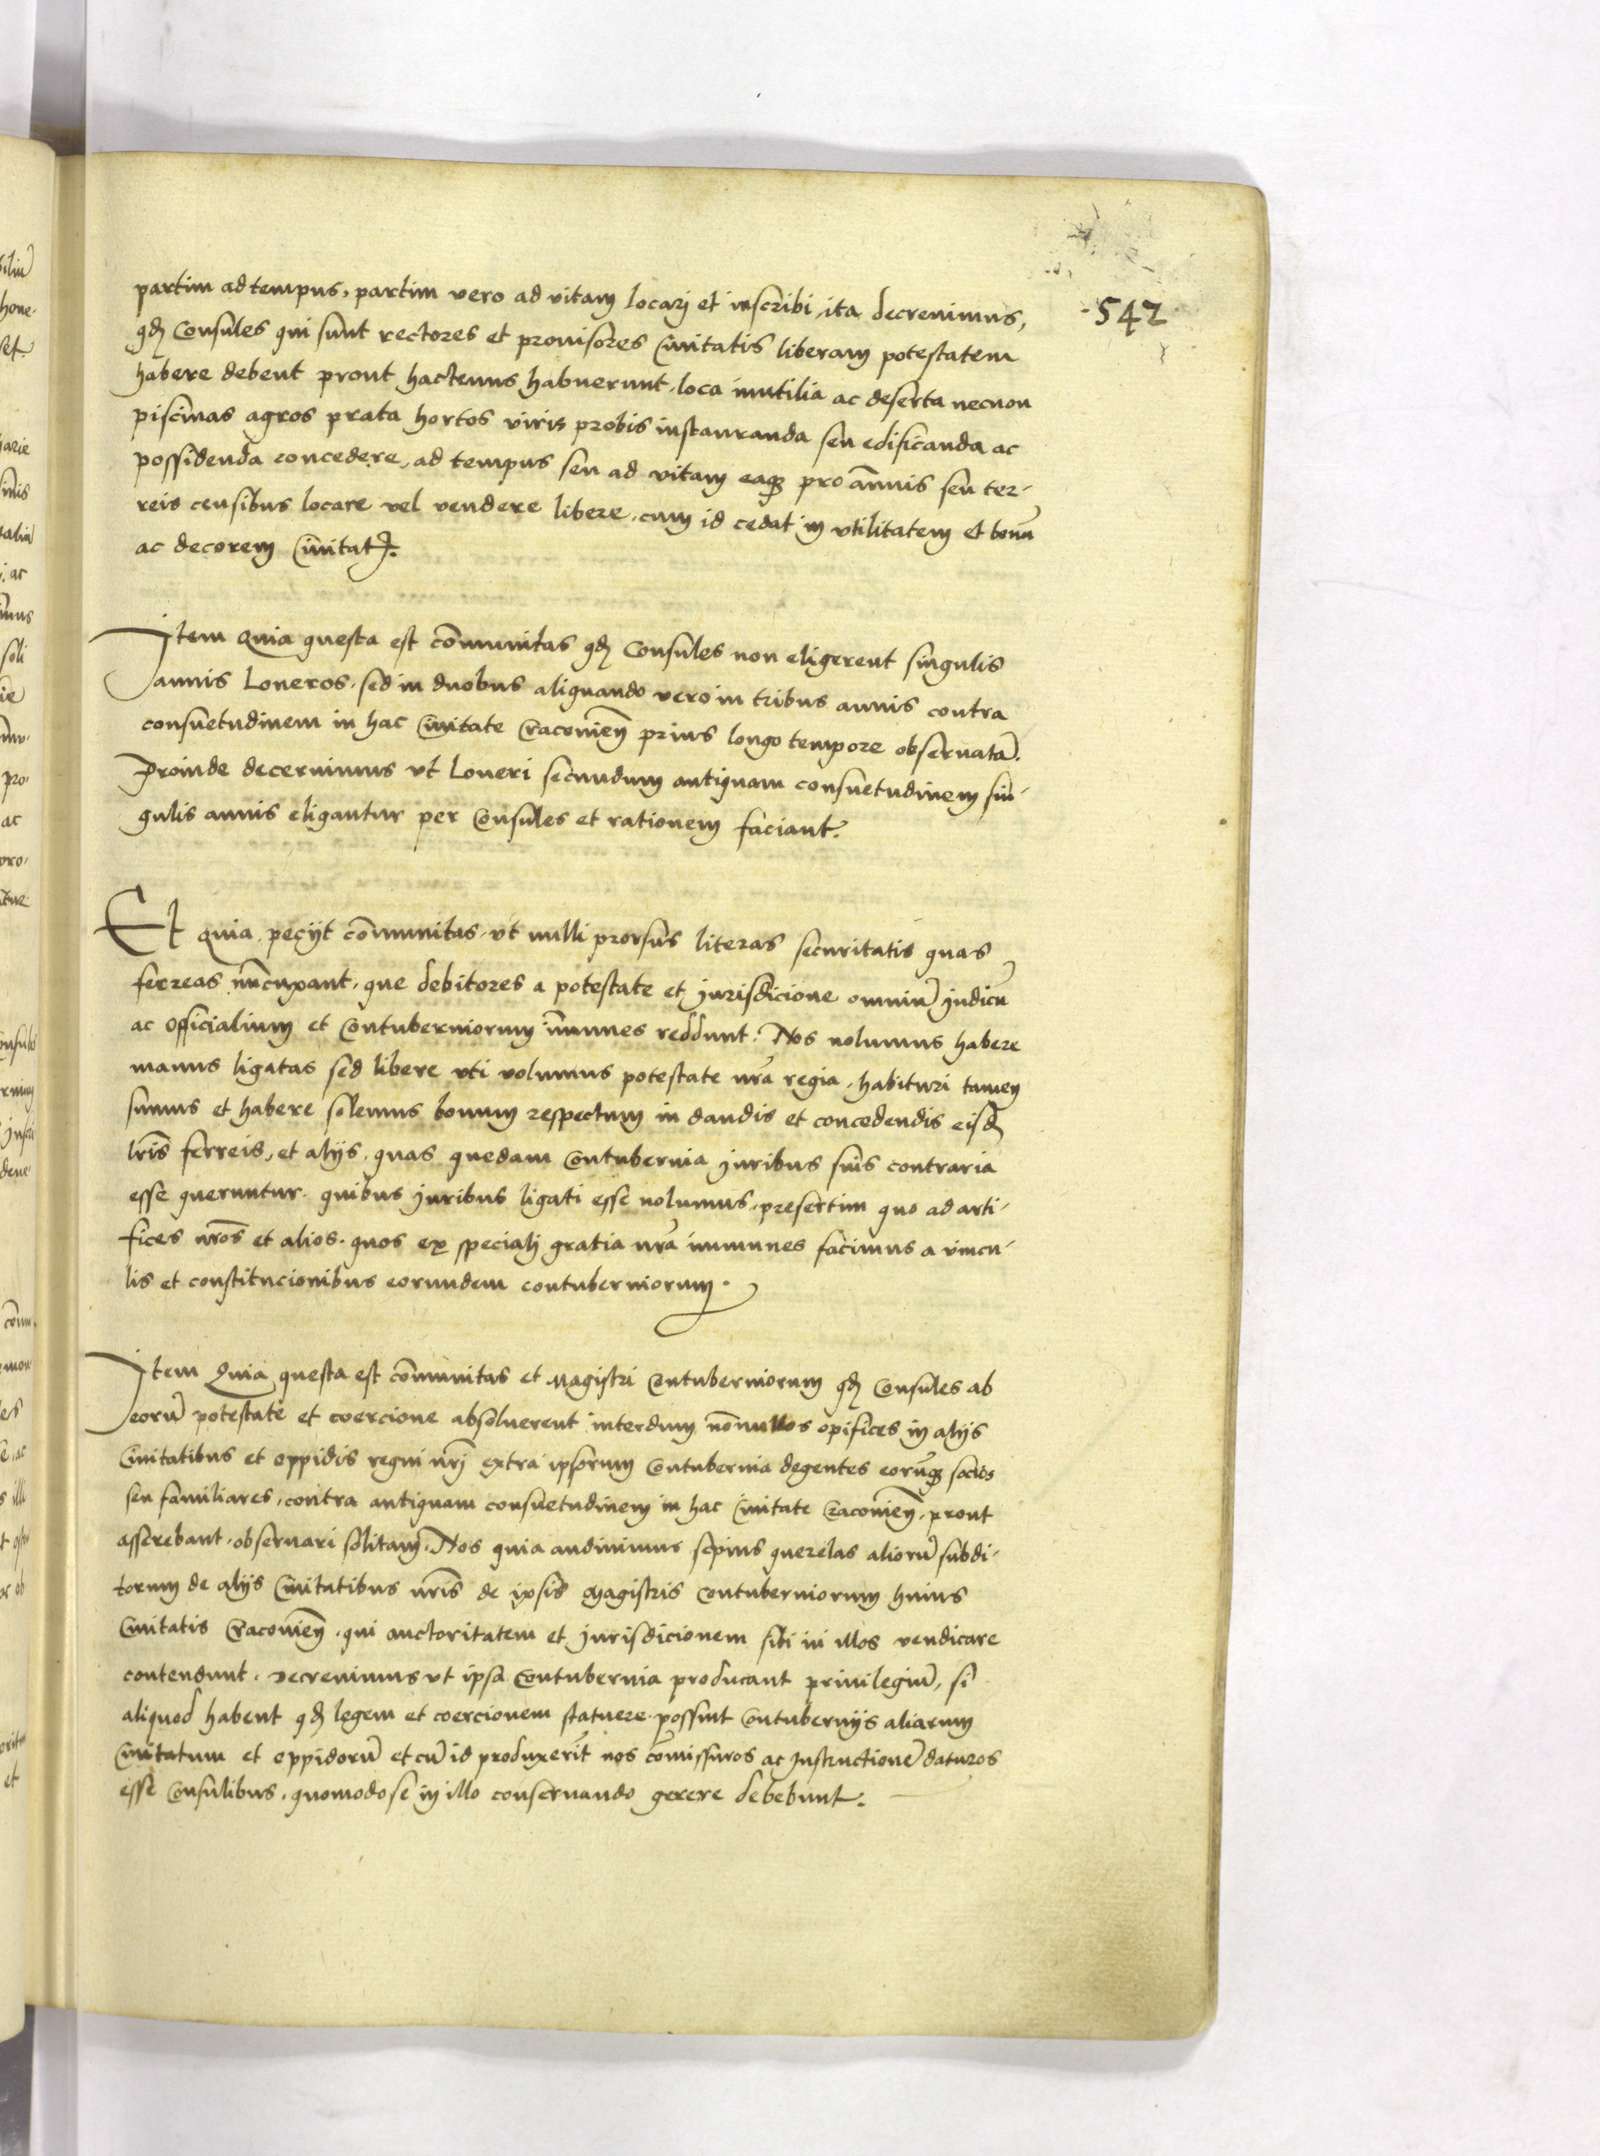 ·542
partim ad tempus, partim vero ad vitam locarj et inscribi, ita decrenimus,
qđ Consules qui sunt rectores et prouisores Ciuitatis liberam potestatem
habere debent prout hactenus habuerunt, loca inutilia ac deserta necnon
piscinas agros prata hortos viris probis instauranda seu edificanda ac
possidenda concedere, ad tempus seu ad vitam eaqȝ pro annuis seu ter-
reis censibus locare vel vendere libere, cum id cedat in vtilitatem et bonū
ac decorem Ciuitatꝭ.
Item Quia questa est cōmunitas qđ Consules non eligerent singulis
annis Loneros, sed in duobus aliquando vero in tribus annis contra
consuetudinem in hac Ciuitate Cracouieñ prius longo tempore obseruatā.
Proinde decernimus vt Loneri secundum antiquam consuetudinem sin-
gulis annis eligantur per Consules et rationem faciant.
Et quia petijt cōmunitas, vt nulli prorsus literas securitatis quas
ferreas nūcupant, que debitores a potestate et jurisdicione omniū judicū
ac officialium et Contuberniorum īmunes reddunt. Nos nolumus habere
manus ligatas sed libere vti volumus potestate nrā regia, habituri tamen
sumus et habere solemus bonum respectum in dandis et concedendis eisđ
lrīs ferreis, et alijs, quas quedam Contubernia juribus suis contraria
esse queruntur. quibus juribus ligati esse nolumus, presertim quo ad arti-
fices nrōs et alios, quos ex specialj gratia nrā immunes facimus a vincu-
lis et constitucionibus eorundem contuberniorum.
Item Quia questa est cōmunitas et Magistri Contuberniorum qđ Consules ab
eorū potestate et coercione absoluerent interdum nōnullos opifices in alijs
Ciuitatibus et oppidis regni nrj extra ipsorum Contubernia degentes eorūqȝ socios
seu familiares, contra antiquam consuetudinem in hac Ciuitate Cracouieñ, prout
asserebant, obseruari solitam. Nos quia audiuimus sepius querelas aliorū subdi-
torum de alijs Ciuitatibus nrīs de ipsis Magistris Contuberniorum huius
Ciuitatis Cracouieñ, qui auctoritatem et jurisdicionem sibi in illos vendicare
contendunt. Decreuimus vt ipsa Contubernia producant priuilegiū, si
aliquod habent qđ legem et coercionem statuere possint Contubernijs aliarum
Ciuitatum et oppidorū et cū id produxerīt nos cōmissuros ac Instructionē daturos
esse Consulibus, quomodo se in illo conseruando gerere debebunt.